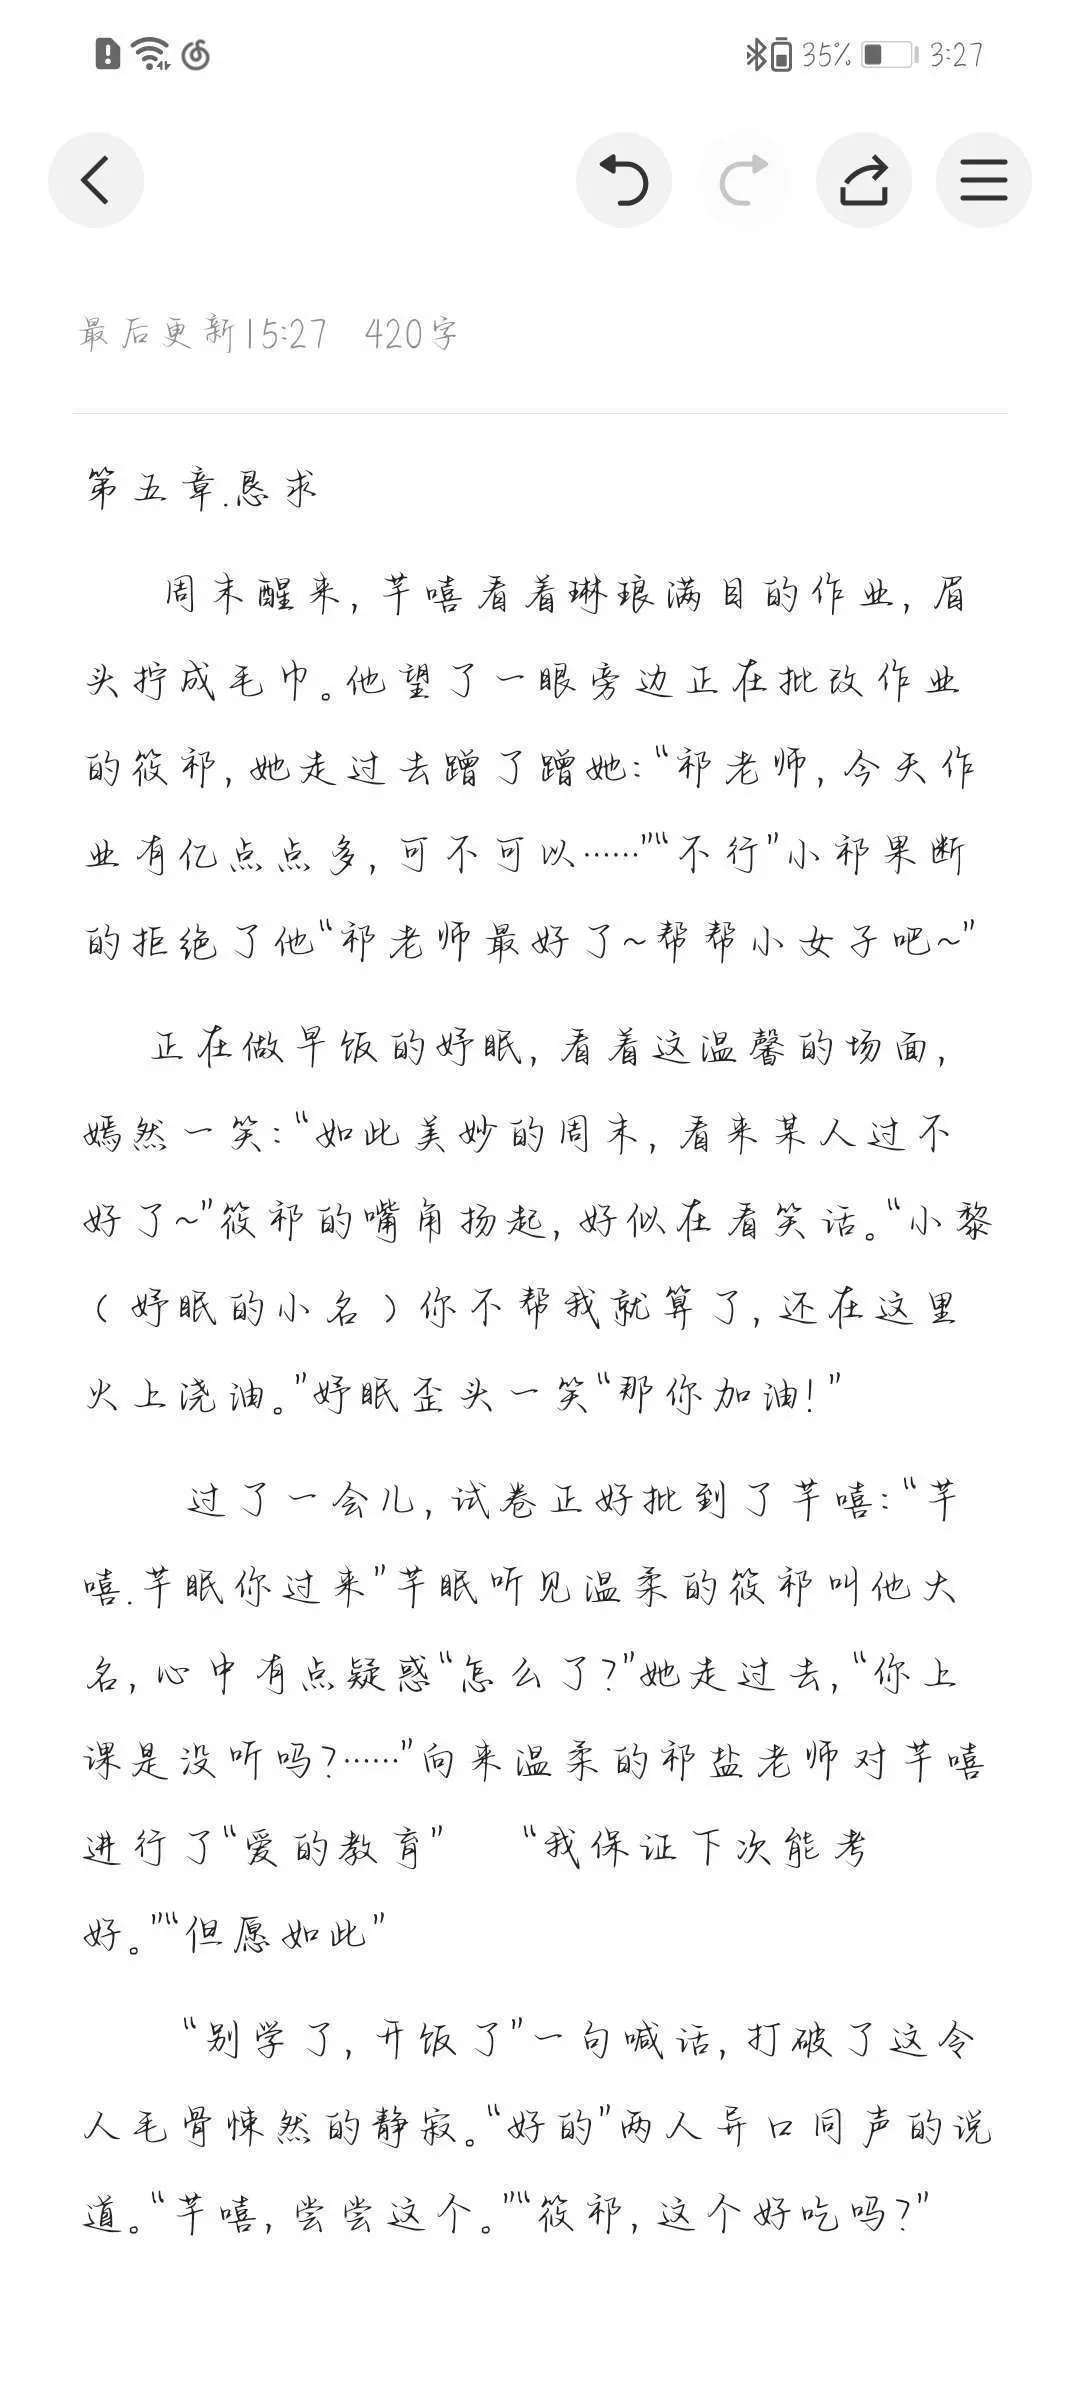 35% 3:27
最后更新15:27 420字
第五章.恳求
周末醒来,芊嘻看着琳琅满目的作业,眉
头拧成毛巾。他望了一眼旁边正在批改作业
的筱祁,她走过去蹭了蹭她:“祁老师,今天作
业有亿点点多,可不可以……”“不行”小祁果断
的拒绝了他“祁老师最好了~帮帮小女子吧~”
正在做早饭的妤眠,看着这温馨的场面,
嫣然一笑:“如此美妙的周末,看来某人过不
好了~”筱祁的嘴角扬起,好似在看笑话。“小黎
(妤眠的小名)你不帮我就算了,还在这里
火上浇油。”妤眠歪头一笑“那你加油!”
过了一会儿,试卷正好批到了芊嘻:“芊
嘻.芊眠你过来”芊眠听见温柔的筱祁叫他大
名,心中有点疑惑“怎么了?”她走过去,“你上
课是没听吗?……”向来温柔的祁盐老师对芊嘻
进行了“爱的教育” “我保证下次能考
好。”“但愿如此”
“别学了,开饭了”一句喊话,打破了这令
人毛骨悚然的静寂。“好的”两人异口同声的说
道。“芊嘻,尝尝这个。”“筱祁,这个好吃吗?”